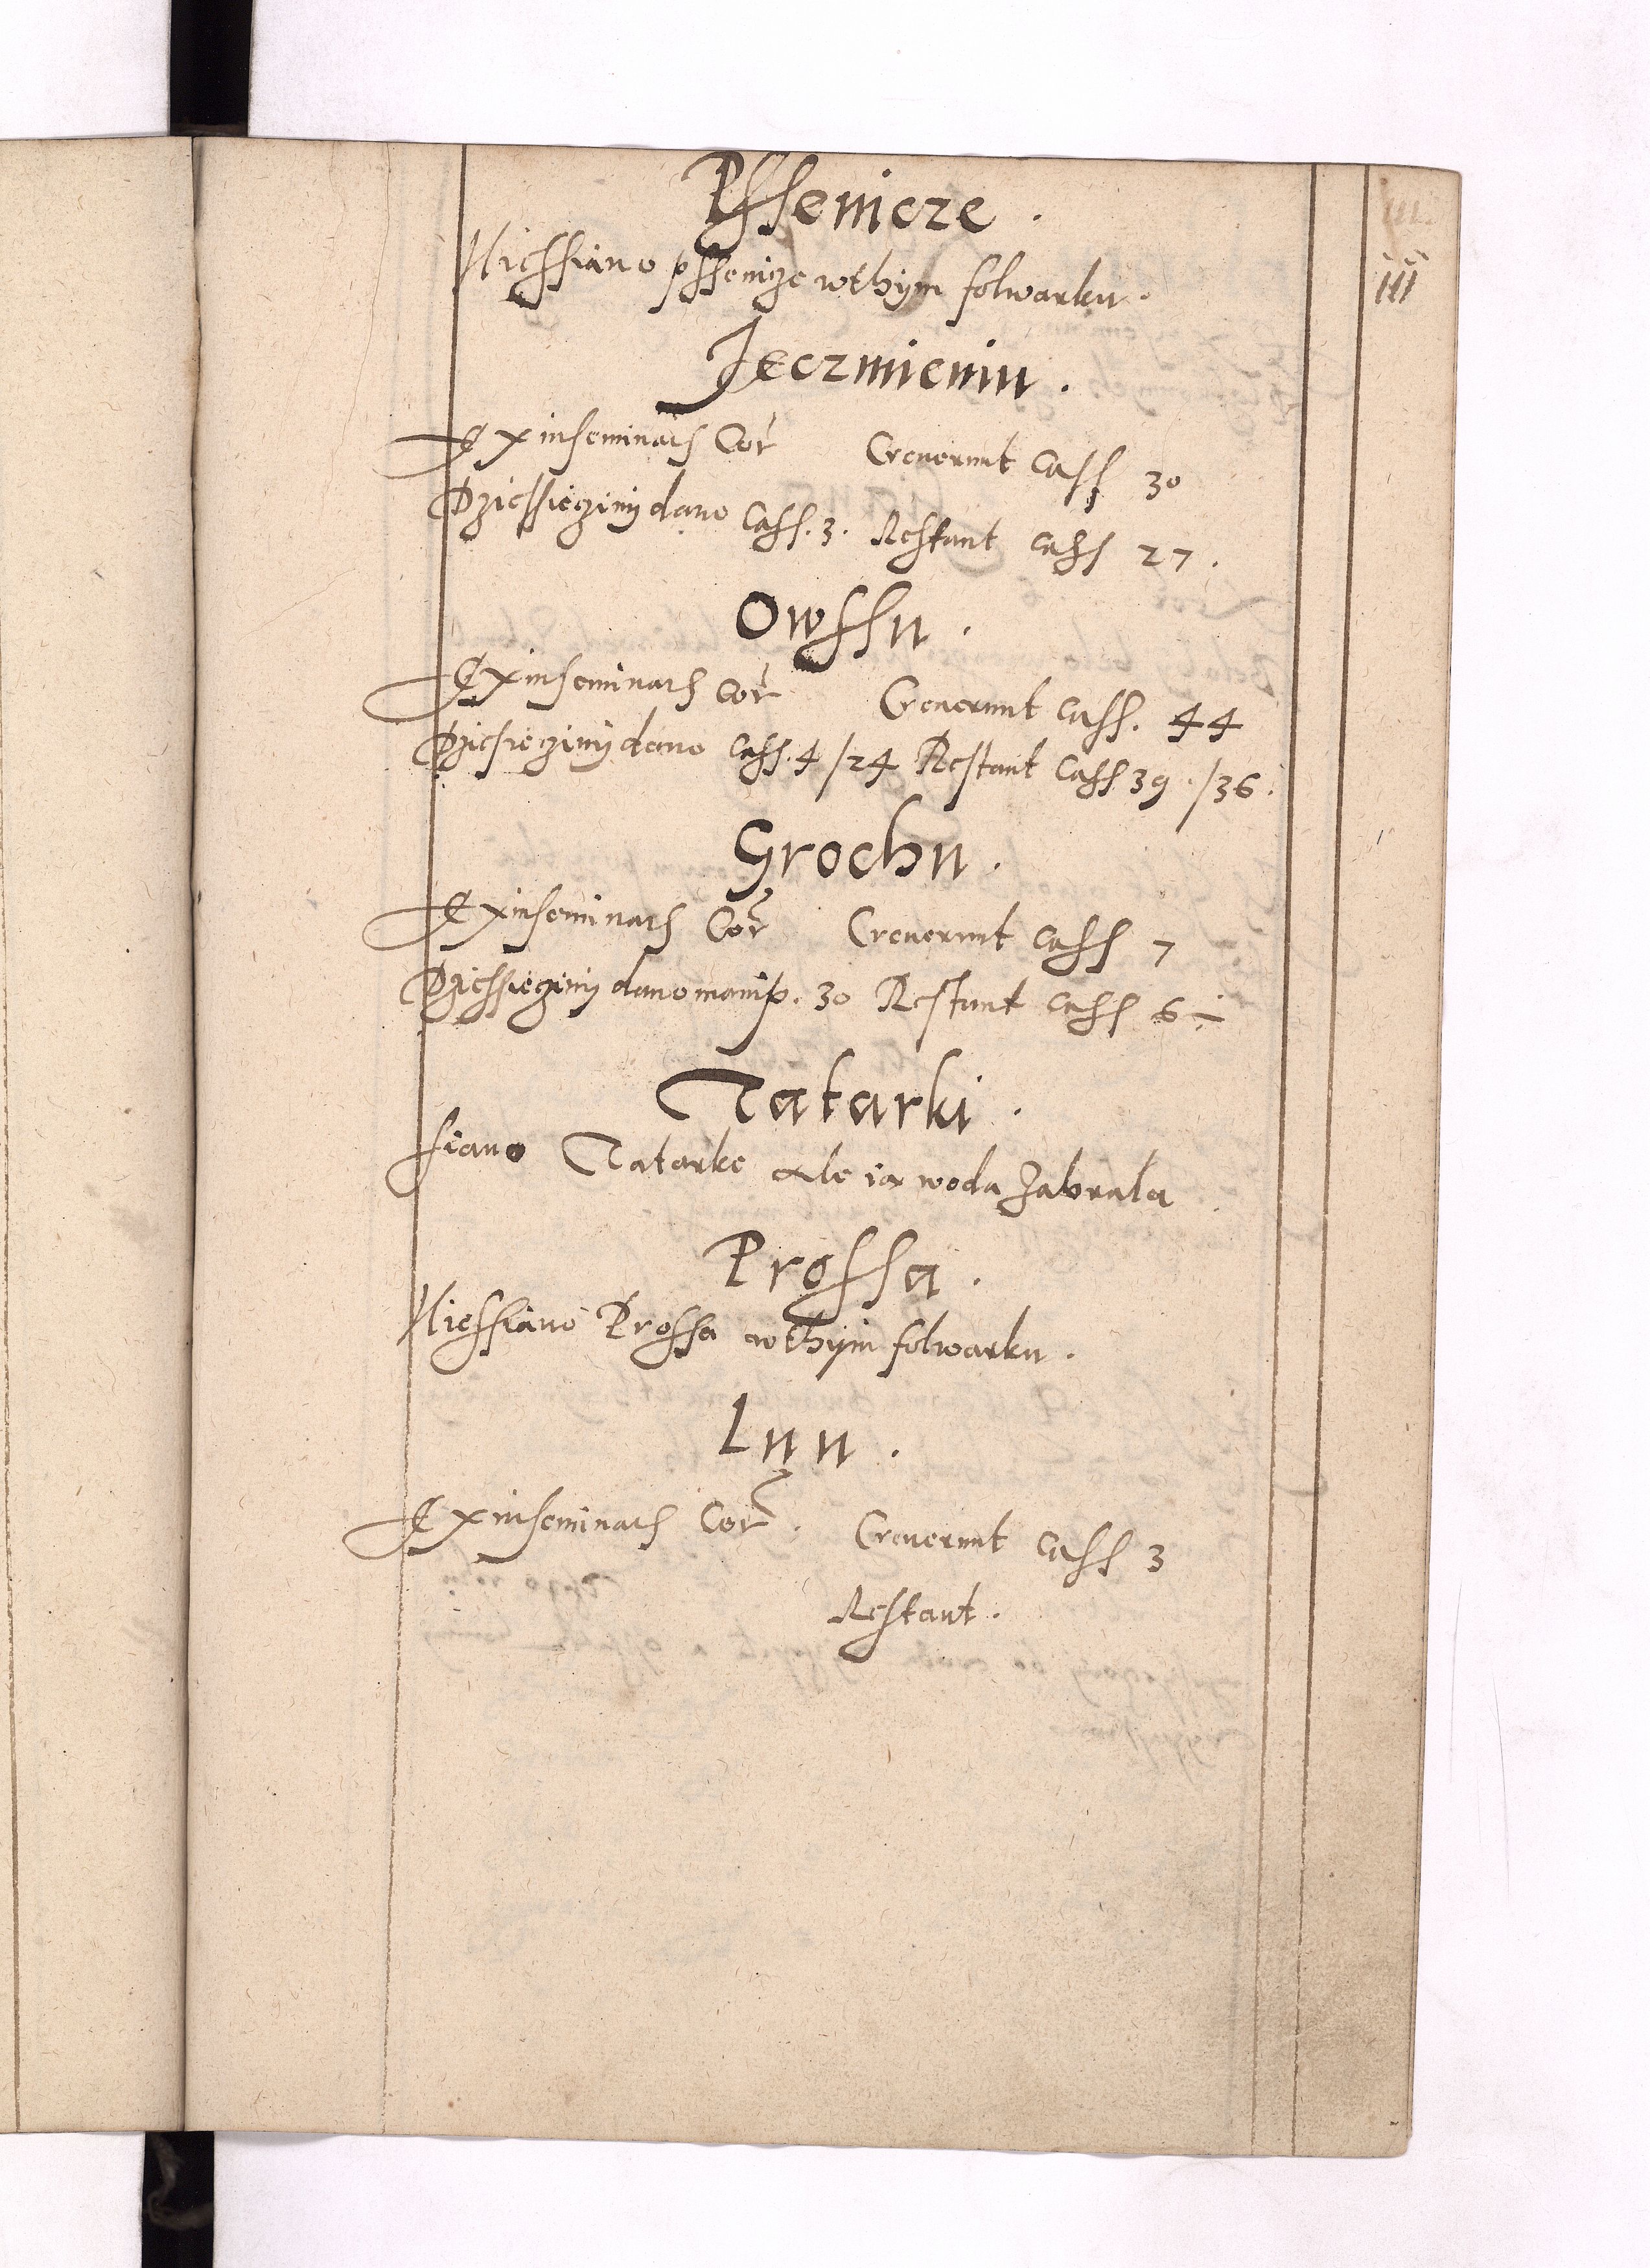 Pssenicze.
iii
Niessiano pssenize wthym folwarku.
Jeczmieniu.
Exinseminatis Cor Creuerunt Cass 30
Dziessieziny dano Cass. 3. Restant Cass 27.
Owssu.
Exinseminatis Cor Creuerunt Cass. 44
Dziesieziny dano Cass. 4/24 Restant Cass 39./36.
Grochu.
Exinseminatis Cor Creuerunt Cass 7
Dziessieziny dano manip. 30 Restant Cass 6
Tatarki.
siano Tatarke ale ia woda zabrala
Prossa.
Niessiano Prossa wthym folwarku.
Lnu.
Exinseminatis Cor. Creuerunt Cass 3
Restant.